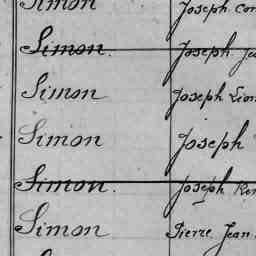 Simon Joseph
Simon. Joseph
Simon Joseph
Simon Joseph
Simon. Joseph
Simon Pierre Jean